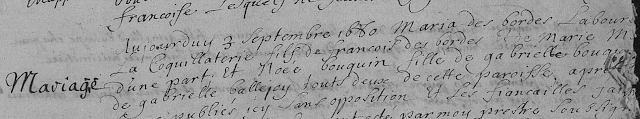 francoise Lesquels
Aujourduy 3 Septembre 1680 Maria des bordes Labour
La Coquillaterie fils de francois des bordes et de Marie M
Mariage dune part et Noee bouquin fille de gabrielle bouquin
de gabrielle ballejoy touts deux de cette paroisse, apres
publiés icy sans opposition et les fiancailles
par moy prestre soussig